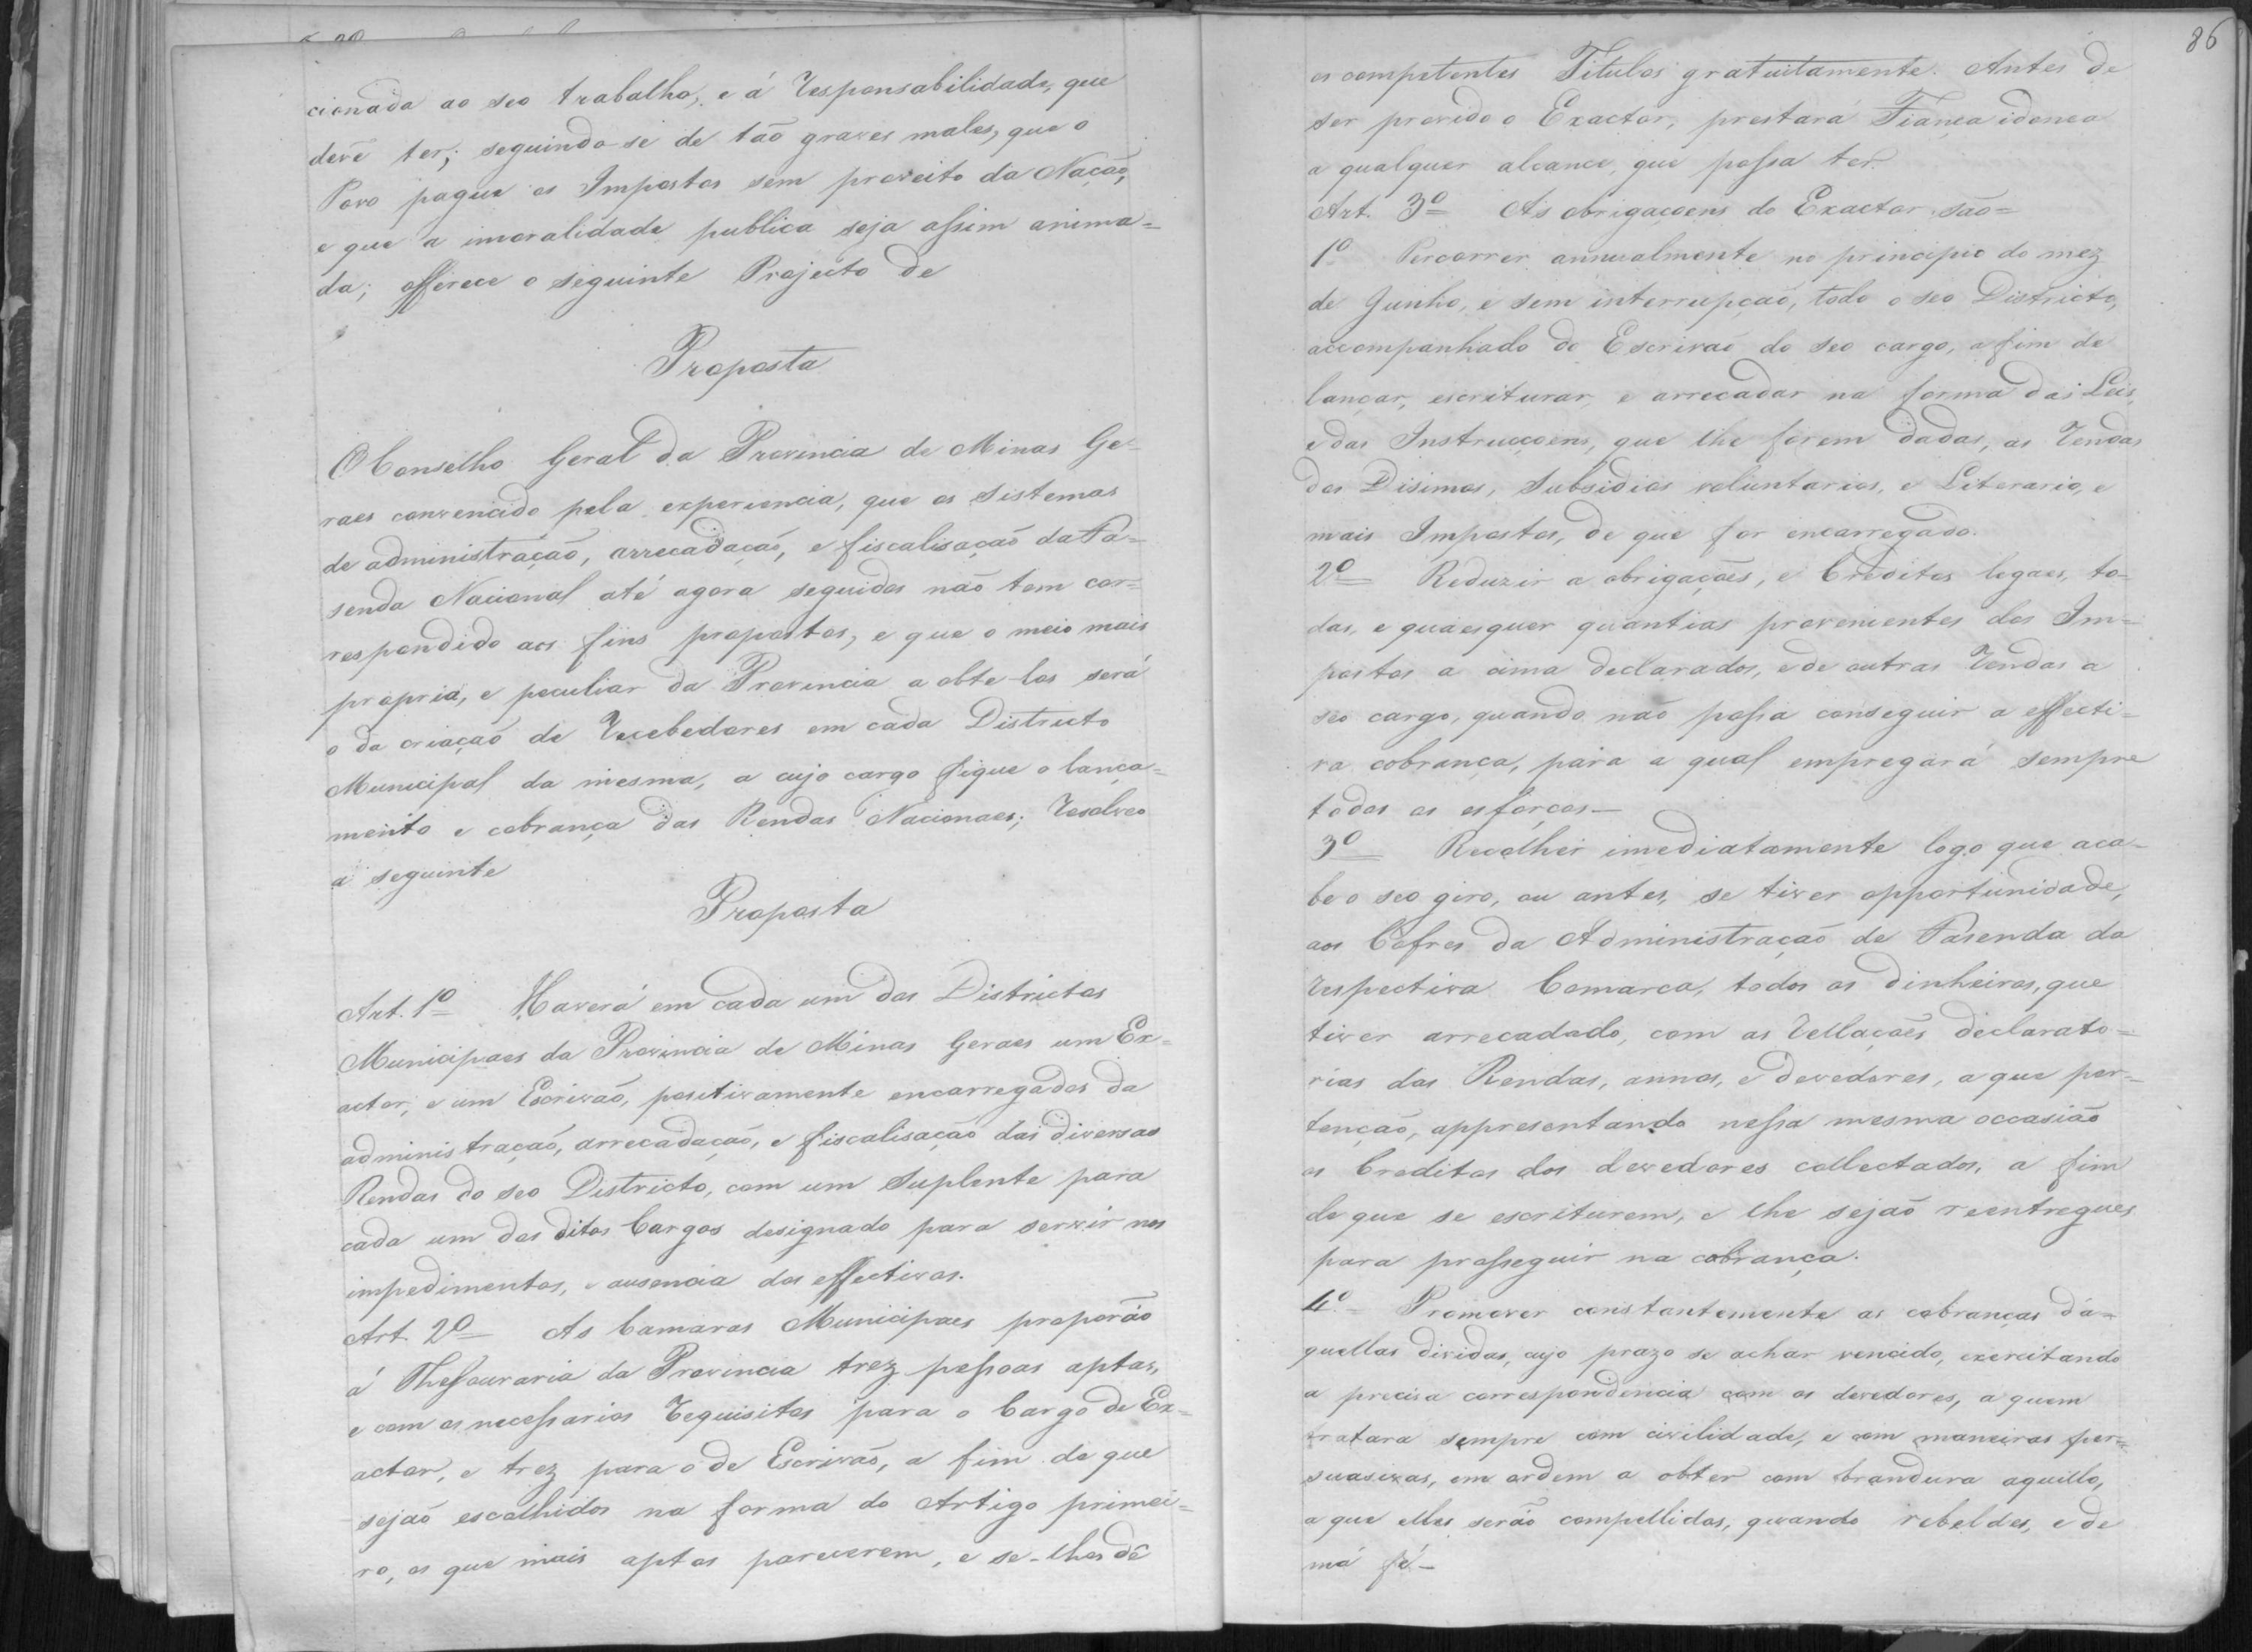 cionada ao seo trabalho, e á responsabilidade, que
deve ter; seguindo-se de tão graves males, que o
Povo pague os Impostos sem proveito da Nação,
e que a imoralidade publica seja assim anima=
da; offerece o seguinte Projecto de
Proposta
O Conselho Geral da Provincia de Minas Ge=
raes convencido pela experiencia, que os sistemas
de administração, arrecadação, e fiscalisação da Fa=
senda Nacional até agora seguidos não tem cor=
respondido aos fins propostos, e que o meio mais
proprio, e peculiar da Provincia a obte-los será
o da criação de Recebedores em cada Districto
Municipal da mesma, a cujo cargo fique o lança=
mento e cobrança das Rendas Nacionaes; resolveo
a seguinte
Proposta
Art. 1º Haverá em cada um dos Districtos
Municipaes da Provincia de Minas Geraes um Ex=
actor, e um Escrivão, positivamente encarregados da
administração, arrecadação, e fiscalisação das diversas
Rendas do seo Districto, com um Suplente para
cada um dos ditos Cargos designado para servir nos
impedimentos, e ausencia dos effectivos.
Art. 2º As Camaras Municipaes proporão
á Thesouraria da Provincia trez pessoas aptas,
e com os necessarios requisitos para o Cargo de Ex=
actor, e trez para o de Escrivão, a fim de que
sejão escolhidos na forma do Artigo primei=
ro, os que mais aptos parecerem, e se-lhes dê
86
os competentes Titulos gratuitamente. Antes de
ser provido o Exactor, prestará Fiança idonea
a qualquer alcance, que possa ter.
Art. 3º As obrigaçoens do Exactor são=
1º Percorrer annualmente no principio do mez
de Junho, e sem interrupção, todo o seo Districto,
accompanhado do Escrivão do seo cargo, a fim de
lançar, escriturar, e arrecadar na forma das Leis,
e das Instrucçoens, que lhe forem dadas, as rendas
dos Disimos, Subsidios voluntarios, e Literario, e
mais Impostos, de que for encarregado.
2º Reduzir a obrigações, e Creditos legaes, to=
das, e quaesquer quantias provenientes dos Im=
postos a cima declarados, e de outras rendas a
seo cargo, quando não possa conseguir a effecti=
va cobrança, para a qual empregará sempre
todos os esforços—
3º Recolher imediatamente logo que aca=
be o seo giro, ou antes, se tiver opportunidade,
aos Cofres da Administração de Fasenda da
respectiva Comarca, todos os dinheiros, que
tiver arrecadado, com as rellações declarato=
rias das Rendas, annos, e devedores, a que per=
tenção, appresentando nessa mesma occasião
os Creditos dos devedores collectados, a fim
de que se escriturem, e lhe sejão reentregues
para prosseguir na cobrança.
4º= Promover constantemente as cobranças da=
quellas dividas, cujo prazo se achar vencido, exercitando
a precisa correspondencia com os devedores, a quem
tratara sempre com civilidade, e com maneiras per=
suasivas, em ordem a obter com brandura aquillo,
a que elles serão compellidos, quando rebeldes, e de
má fé—